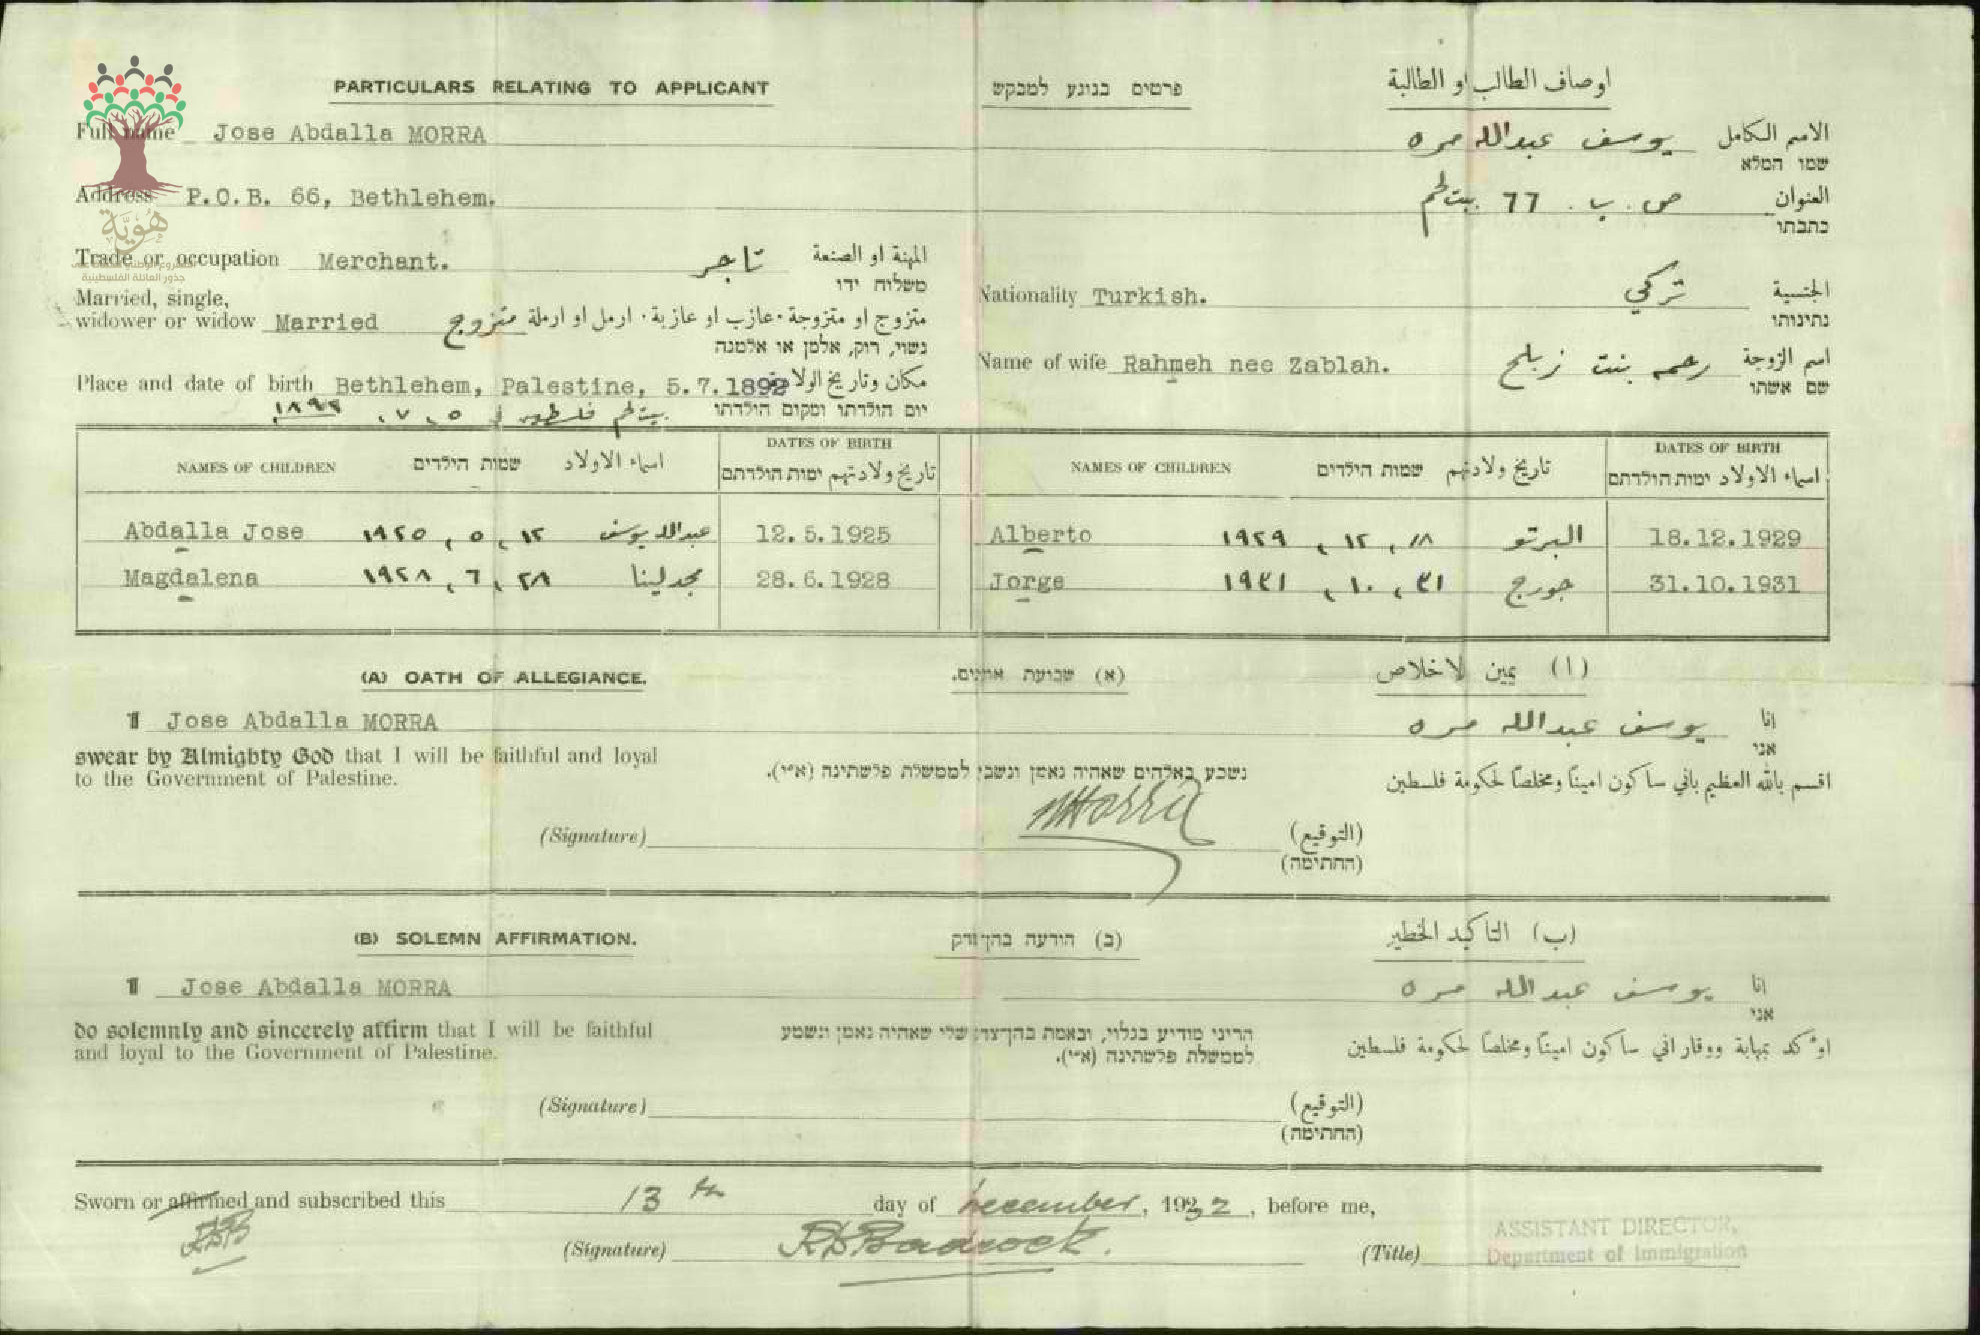 PARTICULARS RELATING TO APPLICANT פרטים בנוגע למבקש اوصاف الطالب او الطالبة
Full name Jose Abdalla MORRA يوسف عبدالله مره الاسم الكامل
שמו המלא
Address P.O.B. 66, Bethlehem. ص. ب. ٦٦ بيت لحم العنوان
כתבתו
هُوِيَّة
Trade or occupation Merchant. تاجر المهنة او الصنعة
جذور العائلة الفلسطينية
משלוח ידו
Nationality Turkish. تركي الجنسية
נתינותו
Married, single,
widower or widow Married متزوج متزوج او متزوجة · عازب او عازبة · ارمل او ارملة
נשוי, רוק, אלמן או אלמנה
Name of wife Rahmeh nee Zablah. رحمه بنت زبلح اسم الزوجة
שם אשתו
Place and date of birth Bethlehem, Palestine, 5.7.1892 مكان وتاريخ الولادة
بيت لحم فلسطين في ٥، ٧، ١٨٩٢ יום הולדתו ומקום הולדתו
NAMES OF CHILDREN שמות הילדים اسماء الاولاد
DATES OF BIRTH
تاريخ ولادتهم ימות הולדתם
NAMES OF CHILDREN שמות הילדים تاريخ ولادتهم
DATES OF BIRTH
اسماء الاولاد ימות הולדתם
Abdalla Jose ١٩٢٥ ، ٥ ، ١٢ عبدالله يوسف 12.5.1925 Alberto ١٩٢٩ ، ١٢ ، ١٨ البرتو 18.12.1929
Magdalena ١٩٢٨ ، ٦ ، ٢٨ مجدلينا 28.6.1928 Jorge ١٩٣١ ، ١٠ ، ٣١ جورج 31.10.1931
(A) OATH OF ALLEGIANCE. (א) שבועת אמונים. (ا) يمين الاخلاص
I Jose Abdalla MORRA يوسف عبدالله مره انا
אני
swear by Almighty God that I will be faithful and loyal
to the Government of Palestine.
נשבע באלהים שאהיה נאמן ונשמע לממשלת פלשתינה (א״י).
اقسم بالله العظيم باني سأكون امينًا ومخلصًا لحكومة فلسطين
(Signature) Morra (التوقيع)
(החתימה)
(B) SOLEMN AFFIRMATION. (ב) הודעה בהן צדק (ب) التاكيد الخطير
I Jose Abdalla MORRA يوسف عبدالله مره انا
אני
do solemnly and sincerely affirm that I will be faithful
and loyal to the Government of Palestine.
הריני מודיע בגלוי, ובאמת בהן־צדק שלי שאהיה נאמן ונשמע
לממשלת פלשתינה (א״י).
اؤكد بمهابة ووقار اني سأكون امينًا ومخلصًا لحكومة فلسطين
(Signature) (التوقيع)
(החתימה)
Sworn or affirmed and subscribed this 13th day of December, 1932, before me,
(Signature) (Title) ASSISTANT DIRECTOR,
Department of Immigration